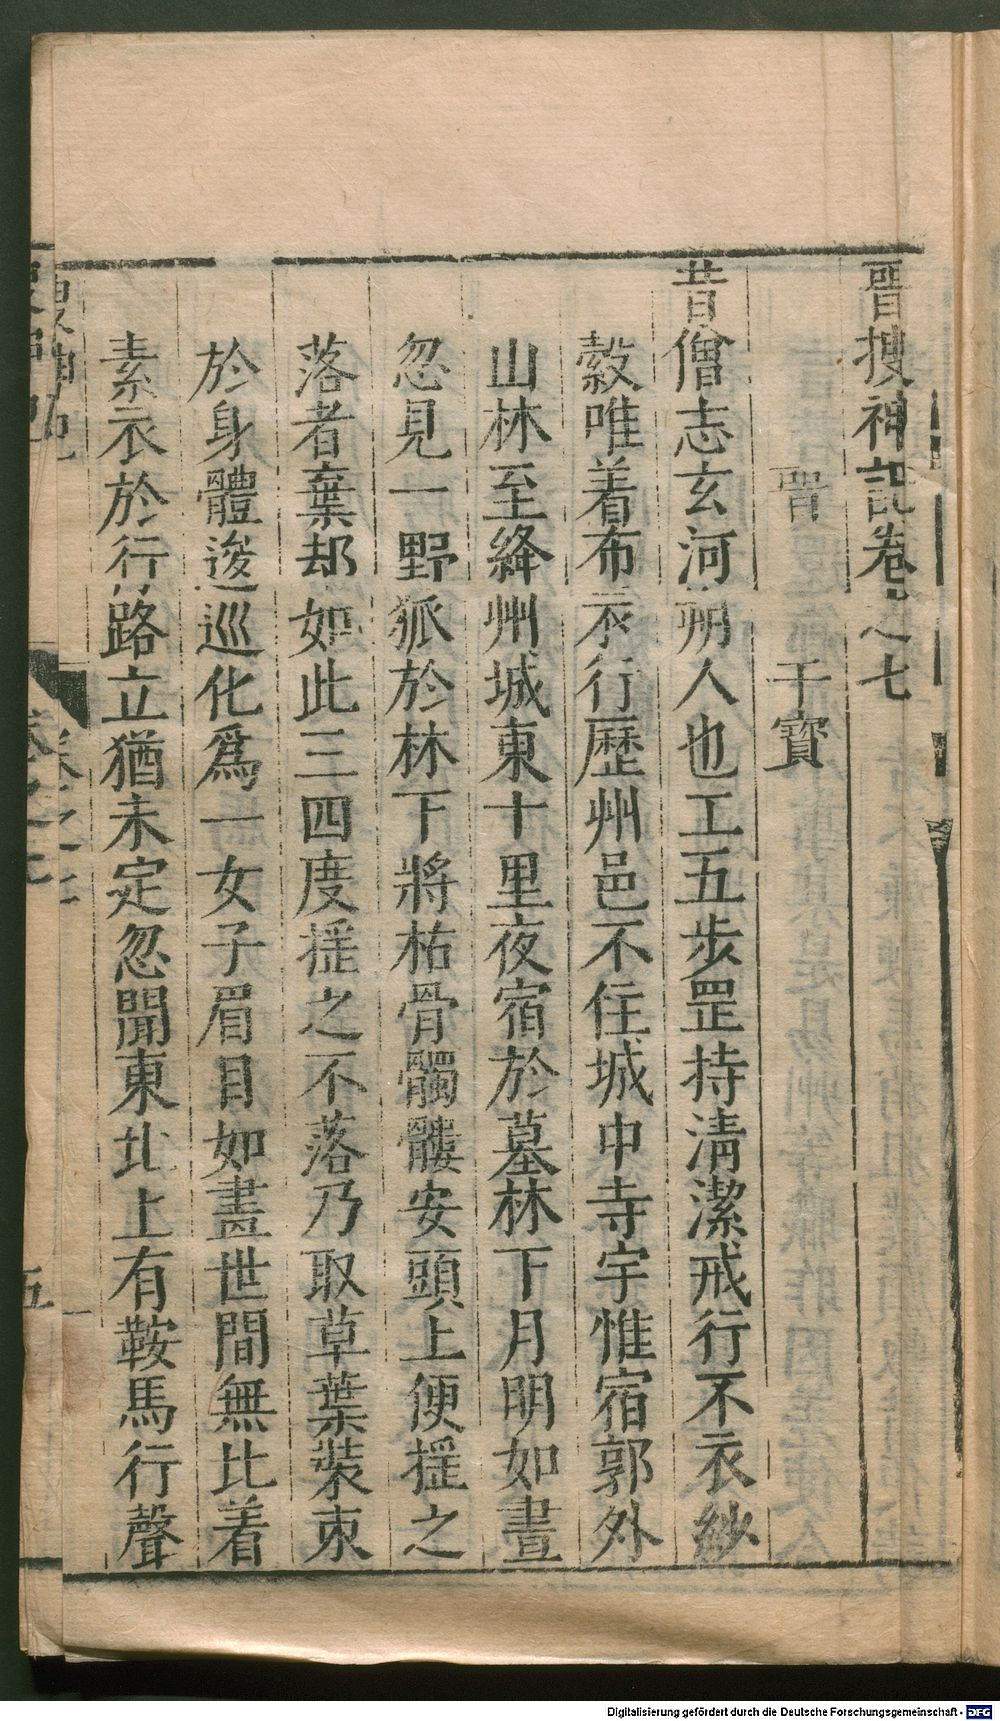 晉搜神記卷之七
晉　干寶
昔僧志玄河朔人也工五步罡持清潔戒行不衣紗
縠唯着布衣行歷州邑不住城中寺宇惟宿郭外
山林至絳州城東十里夜宿於墓林下月明如晝
忽見一野狐於林下將枯骨髑髏安頭上便搖之
落者棄却如此三四度搖之不落乃取草葉裝束
於身體逡巡化爲一女子眉目如畫世間無比着
素衣於行路立猶未定忽聞東北上有鞍馬行聲
搜神記
卷之七
一
搜神記
卷之七
五
Digitalisierung gefördert durch die Deutsche Forschungsgemeinschaft - DFG